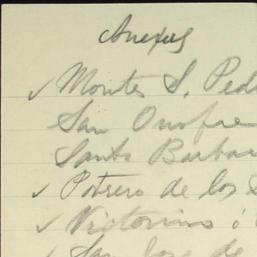 Anexas
✓ Montes S. Ped
San Onofre
Santa Barbar
✓ Potrero de los S
✓ Victorino ó
San Jose de